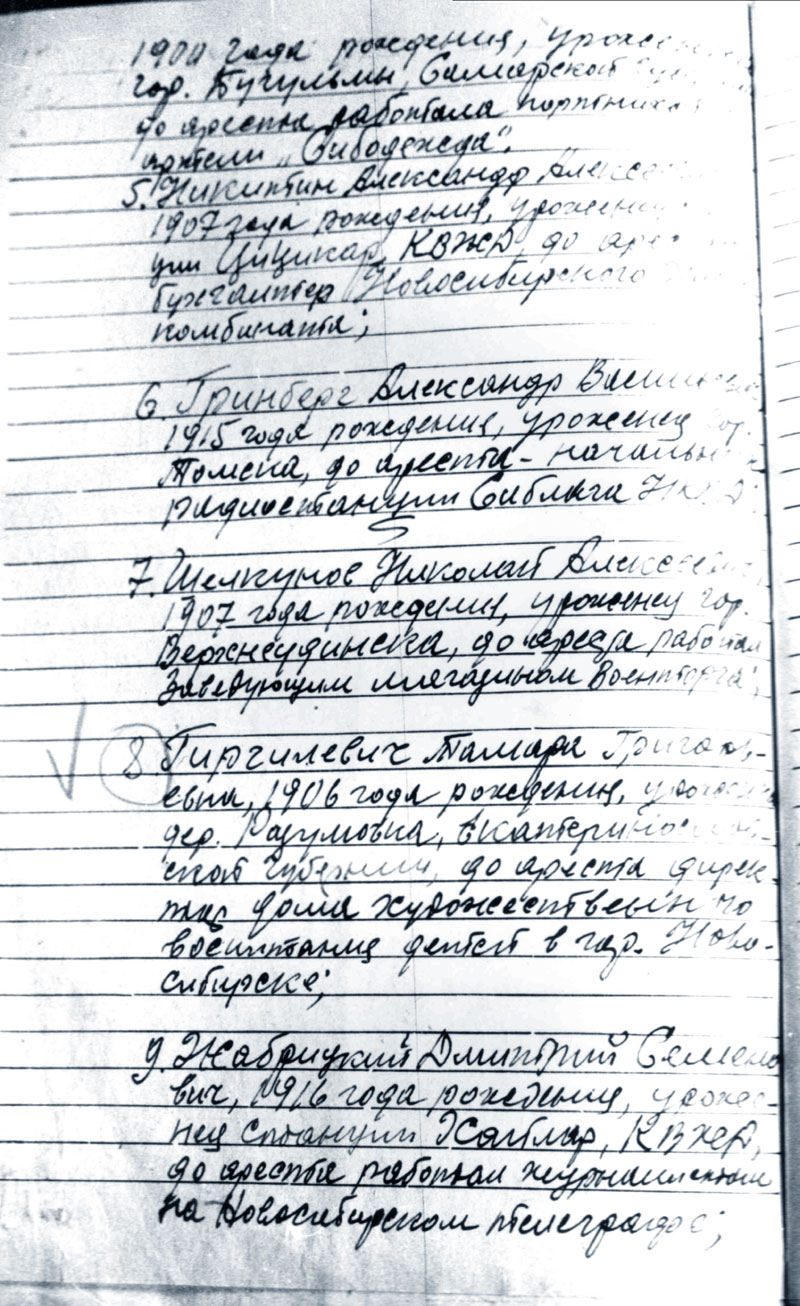 1900 года рождения, уроже
гор. Бугульмы, Самарской
до ареста работала портнихой
артели „Сибодежда".
5. Никитин Александр Алексе
1907 года рождения, уроженец
ции Цицикар, КВЖД, до арес
бухгалтер Новосибирского
комбината;
6. Гринберг Александр Василье
1915 года рождения, уроженец гор.
Томска, до ареста - начальн
радиостанции Сиблага НКВД
7. Шелкунов Николай Алексеевич,
1907 года рождения, уроженец гор.
Верхнеудинска, до ареста работал
Заведующим магазином Военторга;
8. Гиргилевич Тамара Григорь-
евна, 1906 года рождения, урожен
дер. Разумовка, Екатеринослав-
ской губернии, до ареста дирек-
тор дома художественного
воспитания детей в гор. Ново-
сибирске;
9. Жабрицкий Дмитрий Семено
вич, 1916 года рождения, уроже-
нец станции Хайлар, КВЖД,
до ареста работал журналистом
на Новосибирском телеграфе;